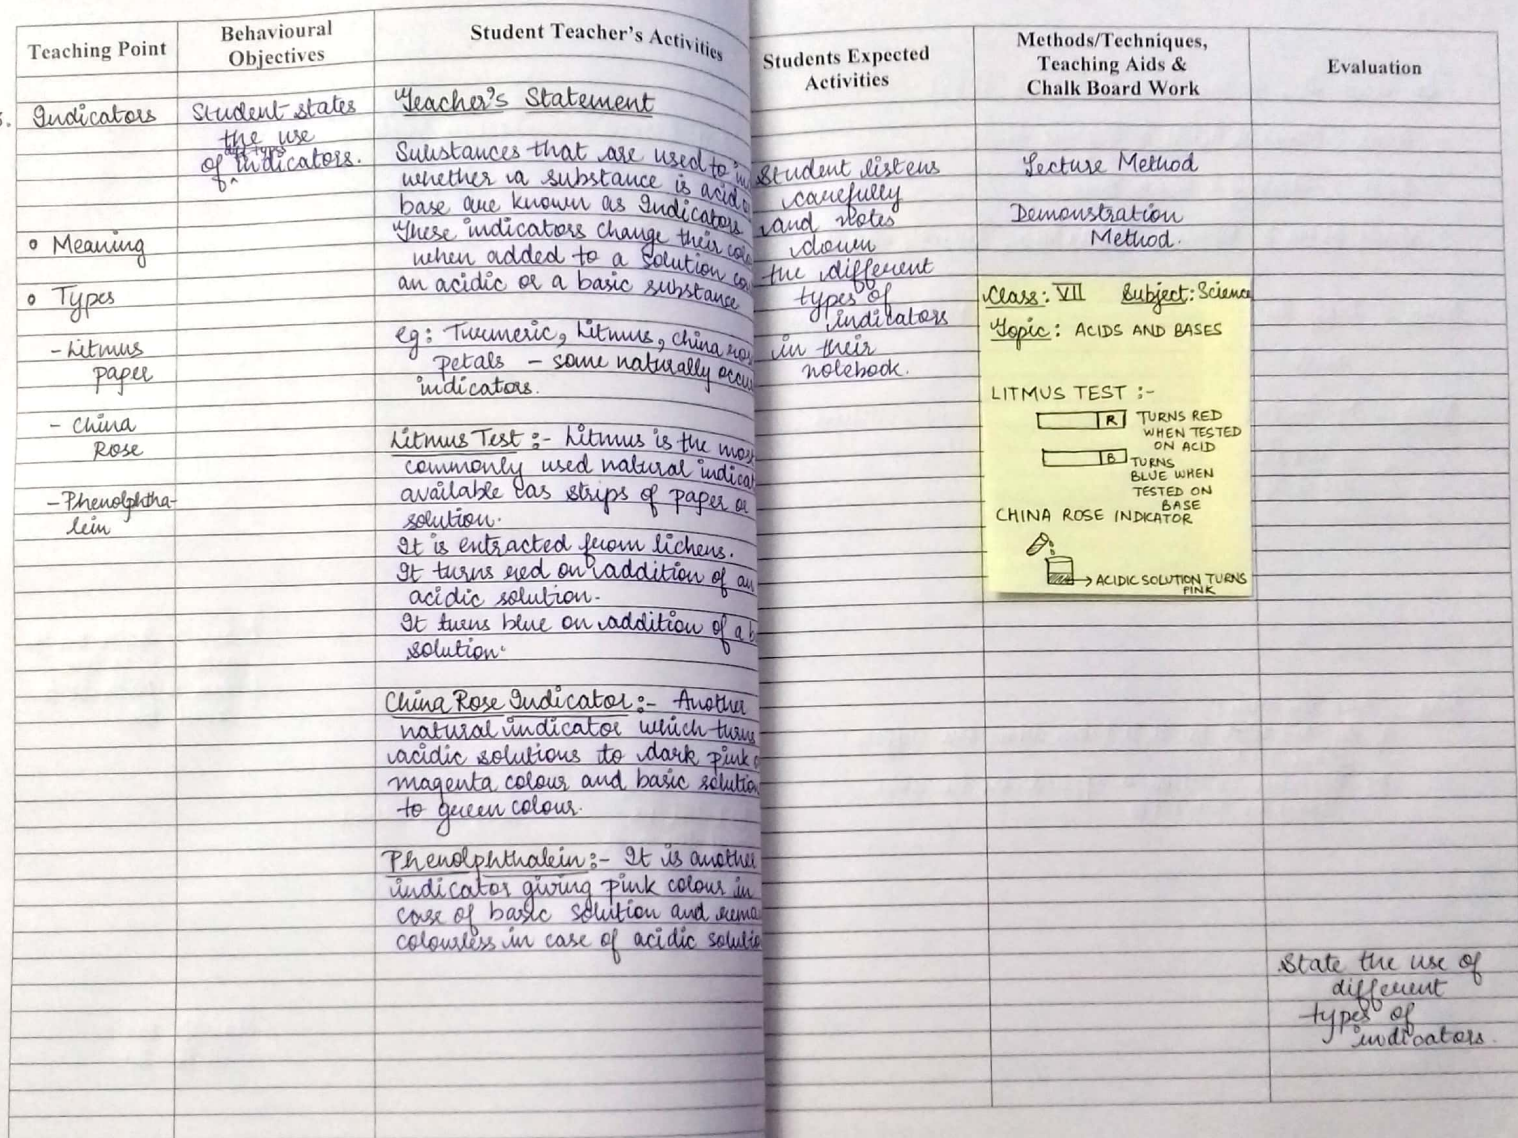 Teaching Point
Behavioural
Objectives
Student Teacher's Activities
Students Expected
Activities
Methods/Techniques,
Teaching Aids &
Chalk Board Work
Evaluation
Indicators
• Meaning
• Types
- Litmus
paper
- China
Rose
- Phenolphtha-
lein
Student states
the use
of indicators.
Teacher's Statement
Substances that are used to
whether a substance is acid
base are known as Indicators.
These indicators change their
when added to a solution
an acidic or a basic substance
eg: Turmeric, Litmus, China
petals - some naturally
indicators.
Litmus Test :- Litmus is the
commonly used natural
available as strips of paper or
solution.
It is extracted from lichens.
It turns red on addition of an
acidic solution.
It turns blue on addition of a
solution.
China Rose Indicator :- Another
natural indicator which turns
acidic solutions to dark pink
magenta colour and basic
to green colour.
Phenolphthalein :- It is another
indicator giving pink colour in
case of basic solution and
colourless in case of acidic
Student listens
carefully
and notes
down
the different
types of
indicators
in their
notebook.
Lecture Method
Demonstration
Method.
Class: VII Subject: Science
Topic: ACIDS AND BASES
LITMUS TEST :-
R TURNS RED
WHEN TESTED
ON ACID
B TURNS
BLUE WHEN
TESTED ON
BASE
CHINA ROSE INDICATOR
→ ACIDIC SOLUTION TURNS
PINK
State the use of
different
types of
indicators.